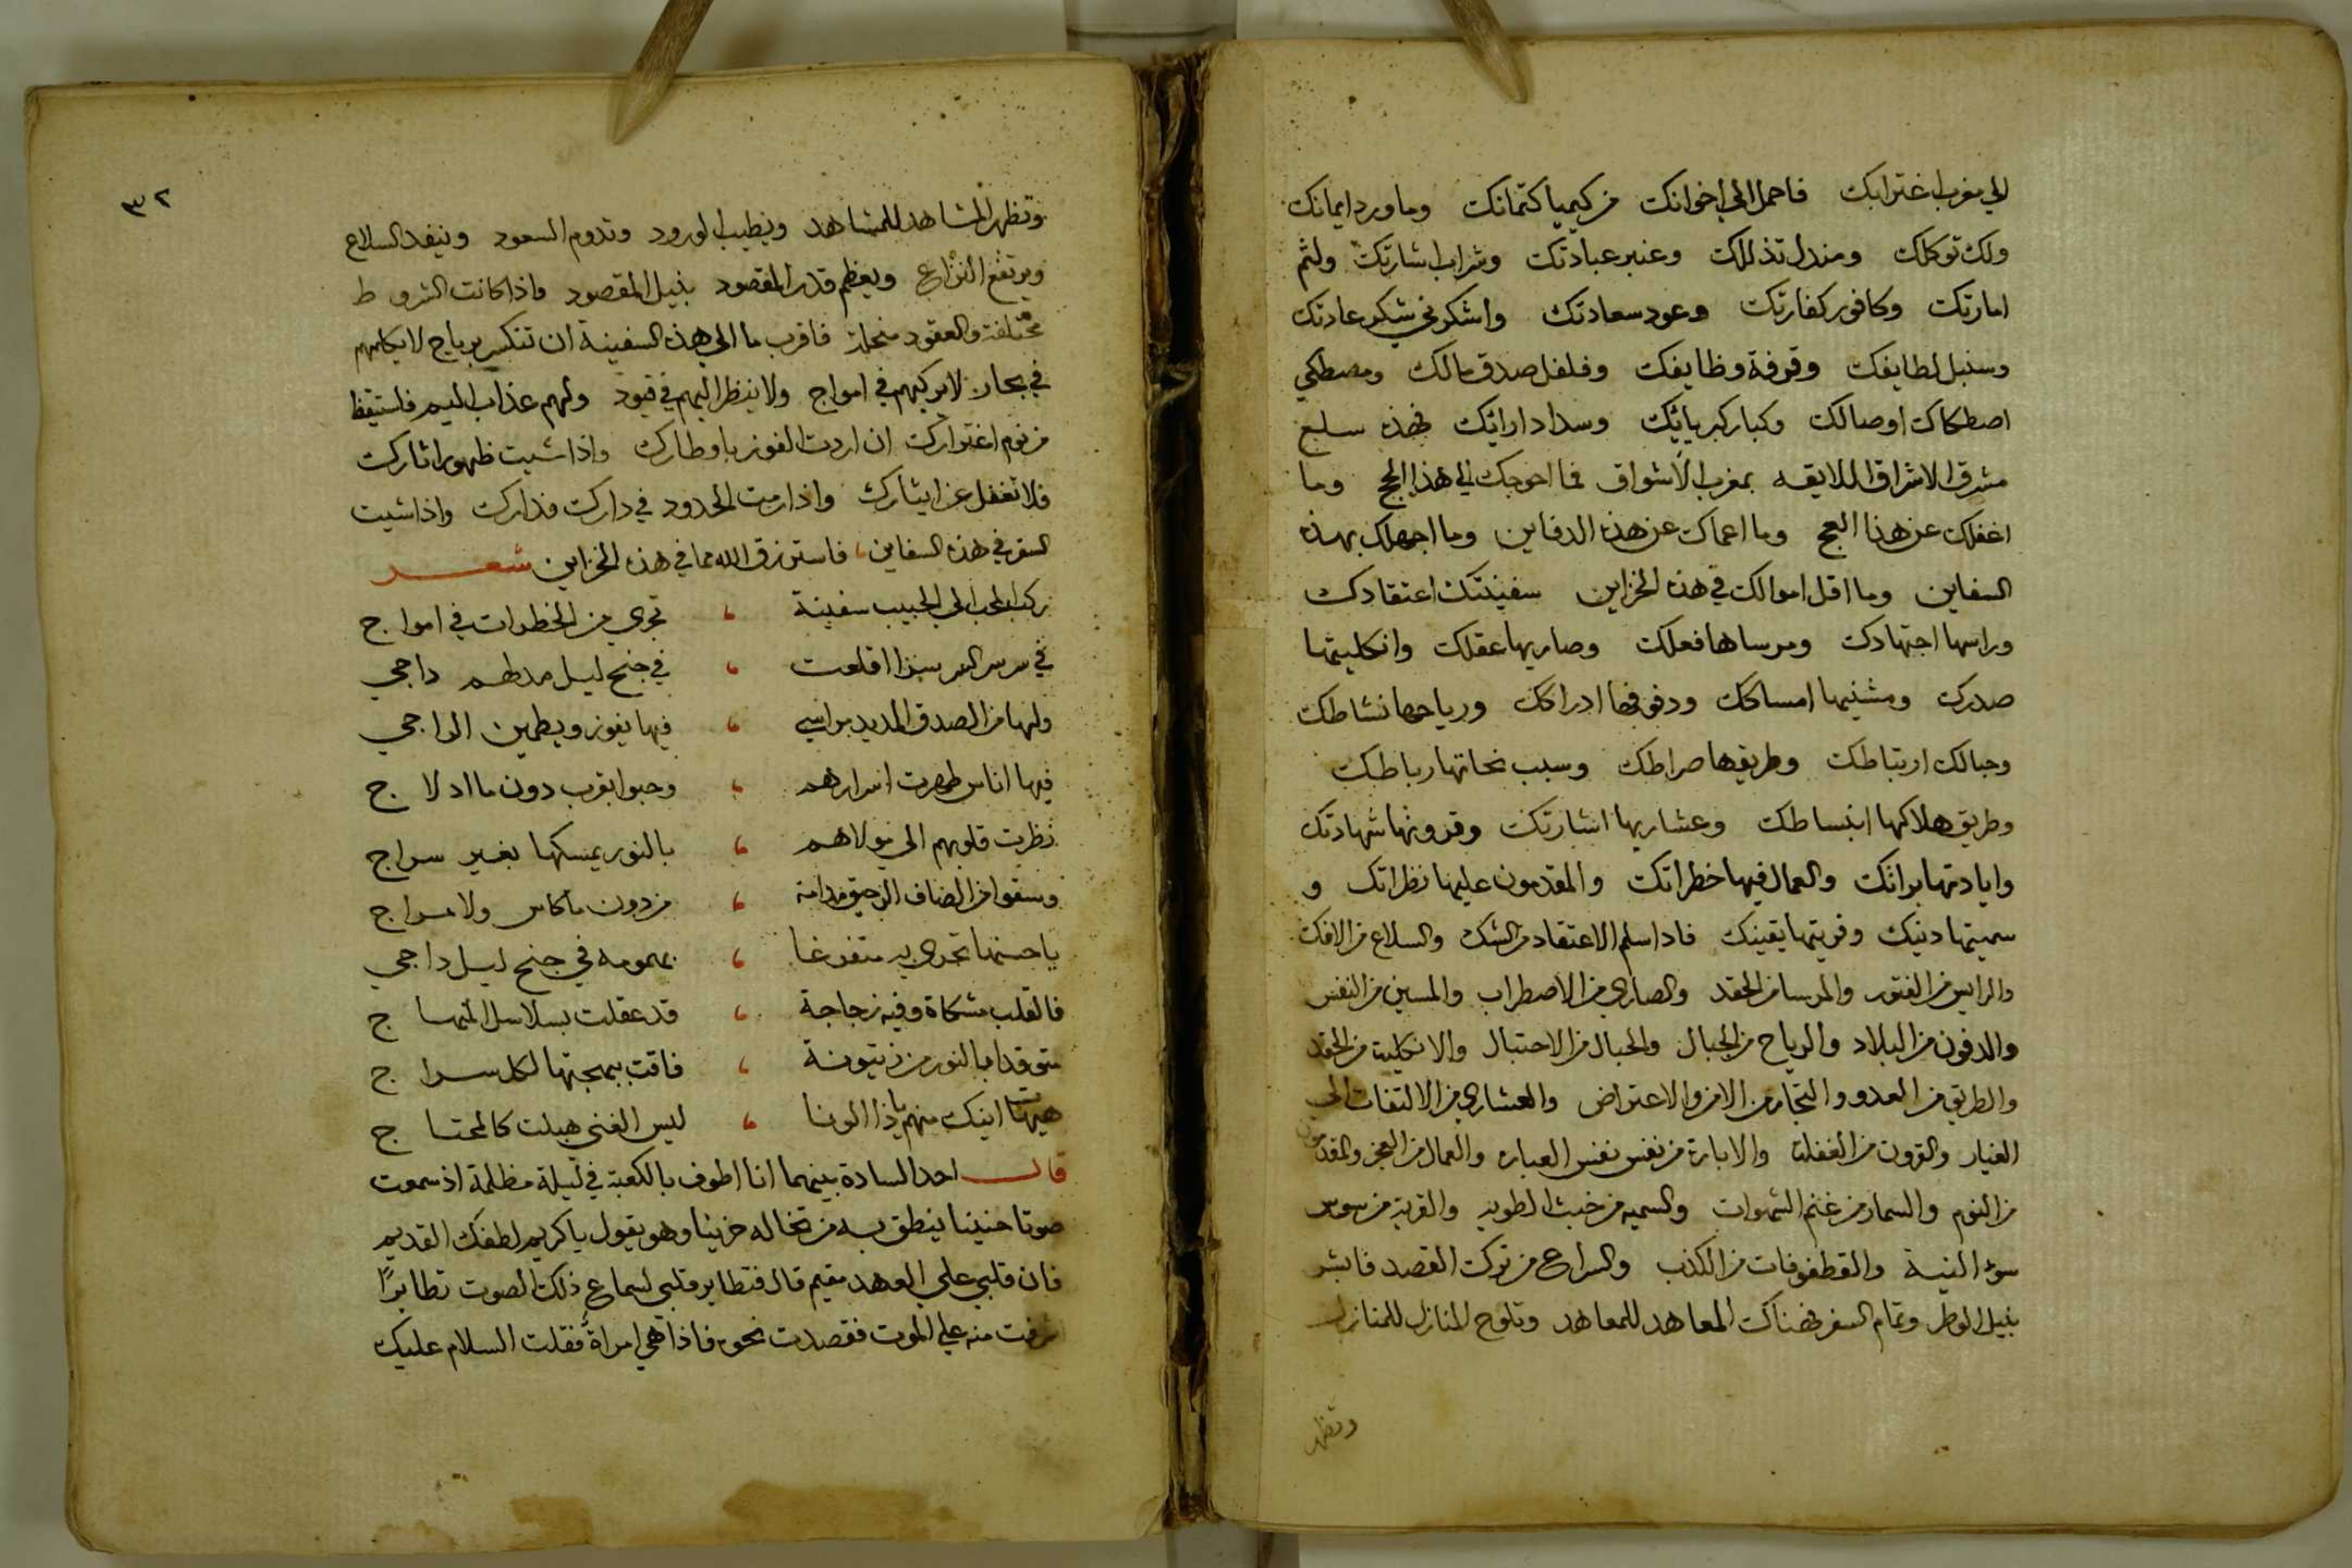 الي مغرب اغترابك فاحمل الي اخوانك من كيميا كتمانك وماورد ايمانك
ولك توكلك ومندل تذللك وعنبر عبادتك وشراب اشارتك ولثم
امارتك وكافور كفارتك وعود سعادتك واشكر نحي شكر عادتك
وسنبل لطايفك وقرفة وظايفك وفلفل صدق مالك ومصطكي
اصطكاك اوصالك وكبار كبريائك وسداد ارائك فهذه سلع
مشرق الاشراق اللايقه بمغرب الاشواق فما احوجك الي هذا الحج وما
اغفلك عن هذا العج وما اعماك عن هذه الدفاين وما اجهلك بهذه
السفاين وما اقل اموالك في هذه الخزاين سفينتك اعتقادك
وراسها اجتهادك ومرساها فعلك وصاريها عقلك وانكليتها
صدرك ومشنيها امساكك ودفوفها ادراكك ورياحها نشاطك
وحبالك ارتباطك وطريقها صراطك وسبب نجاتها رباطك
وطريق هلاكها انبساطك وعشاريها اشارتك وقرونها شهادتك
واياديها براتك والعمال فيها خطراتك والمقدمون عليها نظراتك و
سميتها دينك وقريتها يقينك فاذا سلم الاعتقاد من الشك والسلاع من الافك
والرايس من الفتور والمرسا من الحقد والصاري من الاضطراب والمسين من النفس
والدفون من البلاد والرياح من الجبال والحبال من الاحتبال والانكلية من الحقد
والطريق من العدو والتجار من الامن والاعتراض والعشاري من الالتفات الي
الغيار والقرون من الغفلة والابارة من نفس نفس العباره والعمال من العجز والمقدمون
من النوم والسمار من غنم الشهوات والسميه من خبث الطويه والقريه من سوس
سوء النية والقطفوفات من الكذب والسراع من ترك القصد فابشر
بنيل الوطر وتمام السفر فهناك المعاهد للمعاهد وتلوح المنازل للمنازل
وتظهر
٣٢
وتظهر المشاهد للمشاهد ويطيب الورود وتدوم السعود وينفد السلاع
ويرتفع النزاع ويعظم قدر المقصود بنيل المقصود واذا كانت الشروط
مختلفة والعقود منحلة فاقرب ما الي هذه السفينة ان تنكسر برياح لا يكلمهم
في بحار لا يزكيهم في امواج ولا ينظر اليهم في قيود ولهم عذاب اليم فاستيقظ
من نوم اغترارك ان اردت الفوز باوطارك واذا شيت ظهور اثارك
فلا تغفل عن ايثارك واذا رمت الحدود في دارك فدارك واذا شيت
السفر في هذه السفاين فاسترزق الله مما في هذه الخزاين شعر
ركب المحب الي الحبيب سفينة تجري من الخطرات في امواج
في سر سر السر سرا اقلعت في جنح ليل مدلهم داجي
ولها من الصدق المديد براسي فيها يفوز ويطمين الراجي
فيها اناس طهرت اسرارهم وحبوا بقرب دون ما ادلاج
نظرت قلوبهم الي مولاهم بالنور يمسكها بغير سراج
وسقوا من الصاف الرحيق مدامة من دون ما كاس ولا مزاج
يا حسنها تجري به متفرغا بهمومه في جنح ليل داجي
فالقلب مشكاة وفيه زجاجة قد عقلت بسلاسل المنهاج
متوقدا بالنور من زيتونة فاقت ببهجتها لكل سراج
هيهات اينك منهم يا ذا الونا ليس الغني هبلت كالمحتاج
قال احد السادة بينهما انا اطوف بالكعبة في ليلة مظلمة اذ سمعت
صوتا حنينا ينطق به من تخاله حزينا وهو يقول يا كريم لطفك القديم
فان قلبي علي العهد مقيم قال فتطاير قلبي لسماع ذلك الصوت تطايرًا
شرفت منه علي الموت فقصدت نحوه فاذا هي امراة فقلت السلام عليك